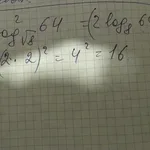 log²_√8 64 = (2 log₈ 6
2 · 2)² = 4² = 16